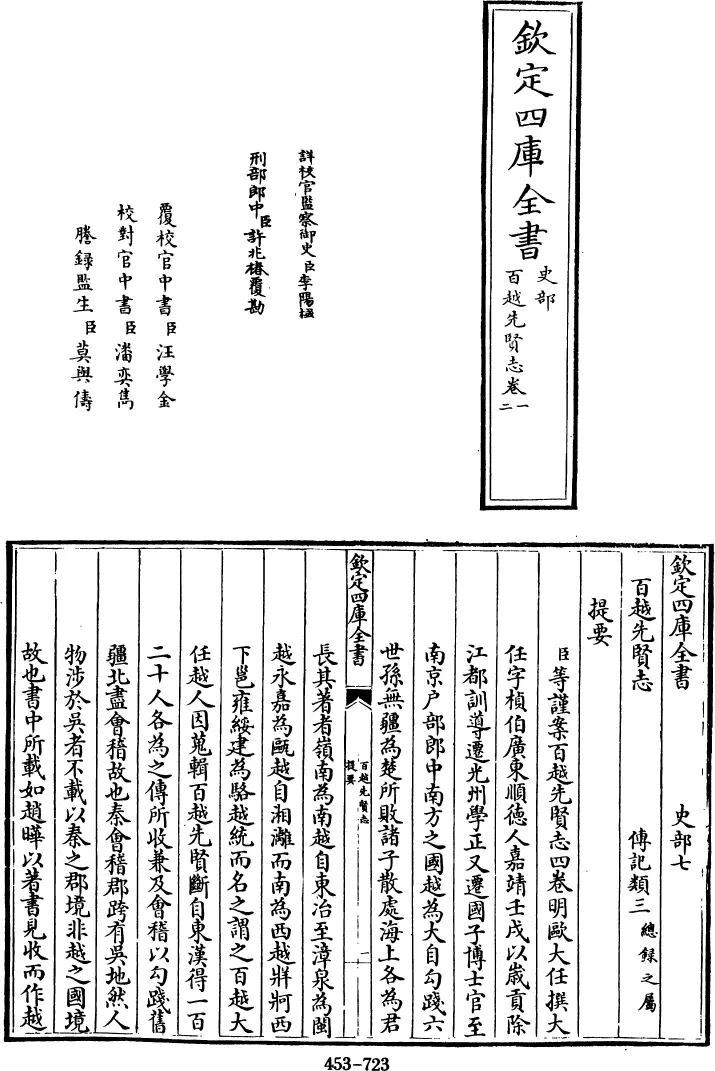 欽定四庫全書
史部
百越先賢志卷一
二
詳校官監察御史臣李陽棫
刑部郎中臣許兆椿覆勘
覆校官中書臣汪學金
校對官中書臣潘奕雋
謄録監生臣莫與儔
欽定四庫全書 史部七
百越先賢志 傳記類三總録之屬
提要
臣等謹案百越先賢志四卷明歐大任撰大
任字楨伯廣東順徳人嘉靖壬戌以嵗貢除
江都訓導遷光州學正又遷國子博士官至
南京户部郎中南方之國越為大自勾踐六
世孫無疆為楚所敗諸子散處海上各為君
欽定四庫全書
百越先賢志
提要
一
長其著者嶺南為南越自東冶至漳泉為閩
越永嘉為甌越自湘灕而南為西越牂牁西
下邕雍綏建為駱越統而名之謂之百越大
任越人因蒐輯百越先賢斷自東漢得一百
二十人各為之傳所收兼及會稽以勾踐舊
疆北盡會稽故也秦會稽郡跨有吳地然人
物涉於吳者不載以秦之郡境非越之國境
故也書中所載如趙曄以著書見收而作越
453-723